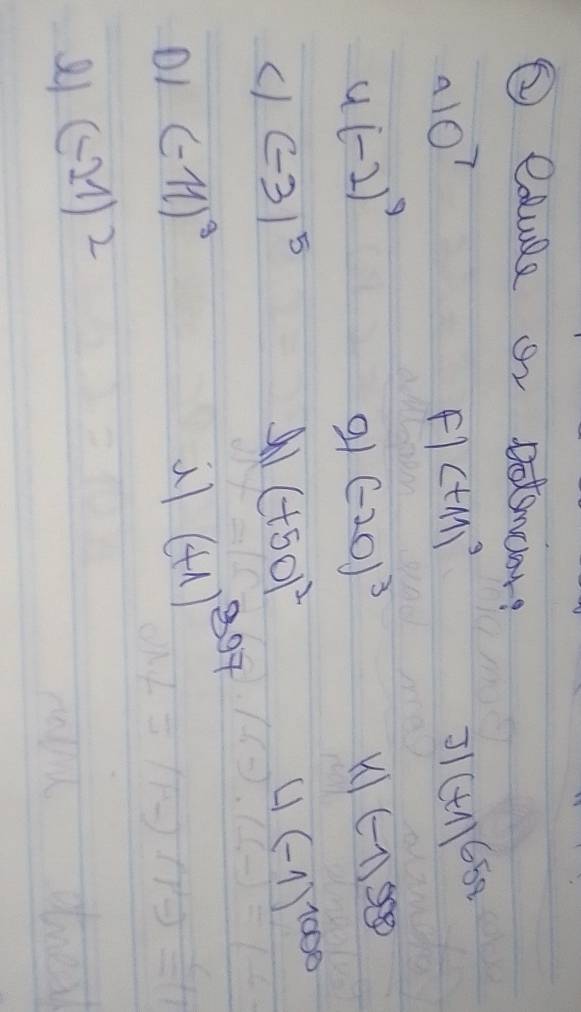 ② Calcule as potências:
a) 0⁷
f) (+11)³
J) (+1)⁶⁵²
b) (-2)⁹
g) (-20)³
K) (-1)⁹⁸
c) (-3)⁵
h) (+50)²
L) (-1)¹⁰⁰⁰
D) (-11)³
i) (+1)⁸⁹⁷
e) (-21)²